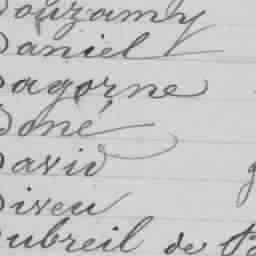 Douzamy
Daniel
Dagorne
Doné
David
Diveu
Dubreil de